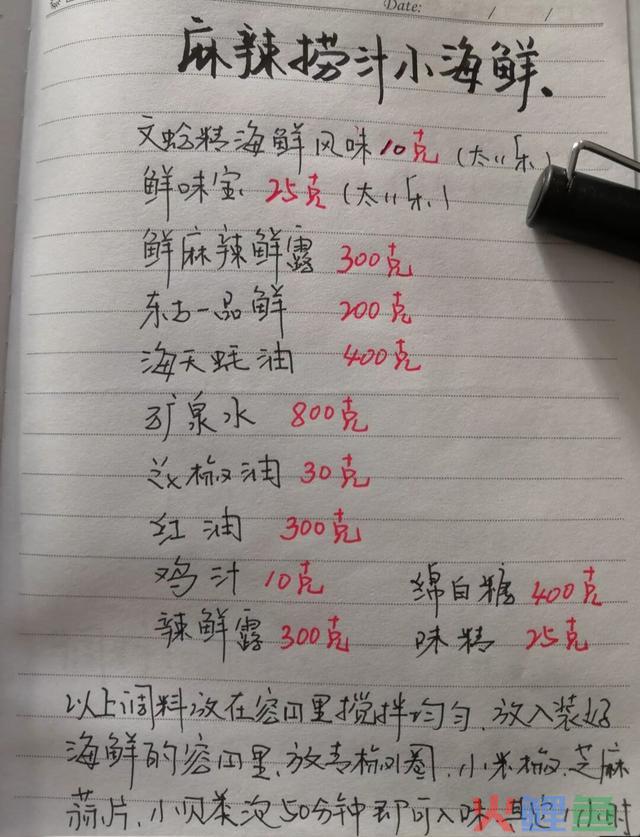 Date: / /
麻辣捞汁小海鲜、
文蛤精海鲜风味10克(太儿乐)
鲜味宝 25克(太儿乐)
鲜麻辣鲜露 300克
东古一品鲜 200克
海天蚝油 400克
矿泉水 800克
椒油 30克
红油 300克
鸡汁 10克 绵白糖 400克
辣鲜露 300克 味精 25克
以上调料放在容四里搅拌均匀,放入装好
海鲜的容四里,放青椒圈,小米椒,芝麻
蒜片,小贝菜泡50分钟即可入味